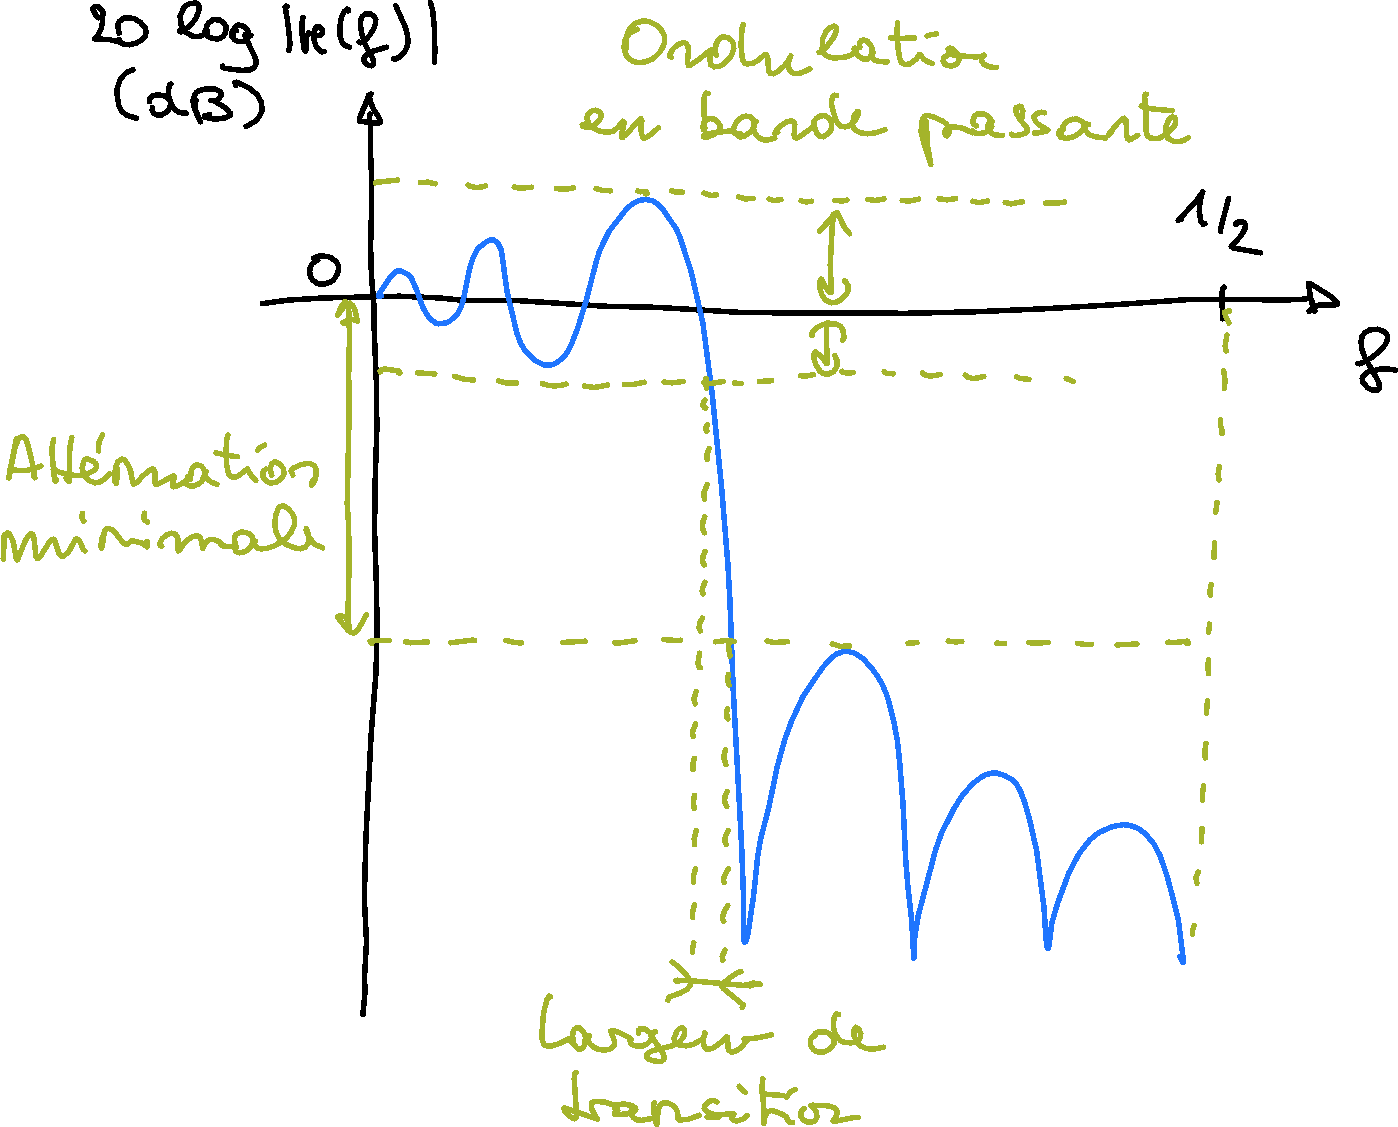 20 log |H(f)|
(dB)
Ondulation
en bande passante
0
1/2
f
Atténuation
minimale
largeur de
transition